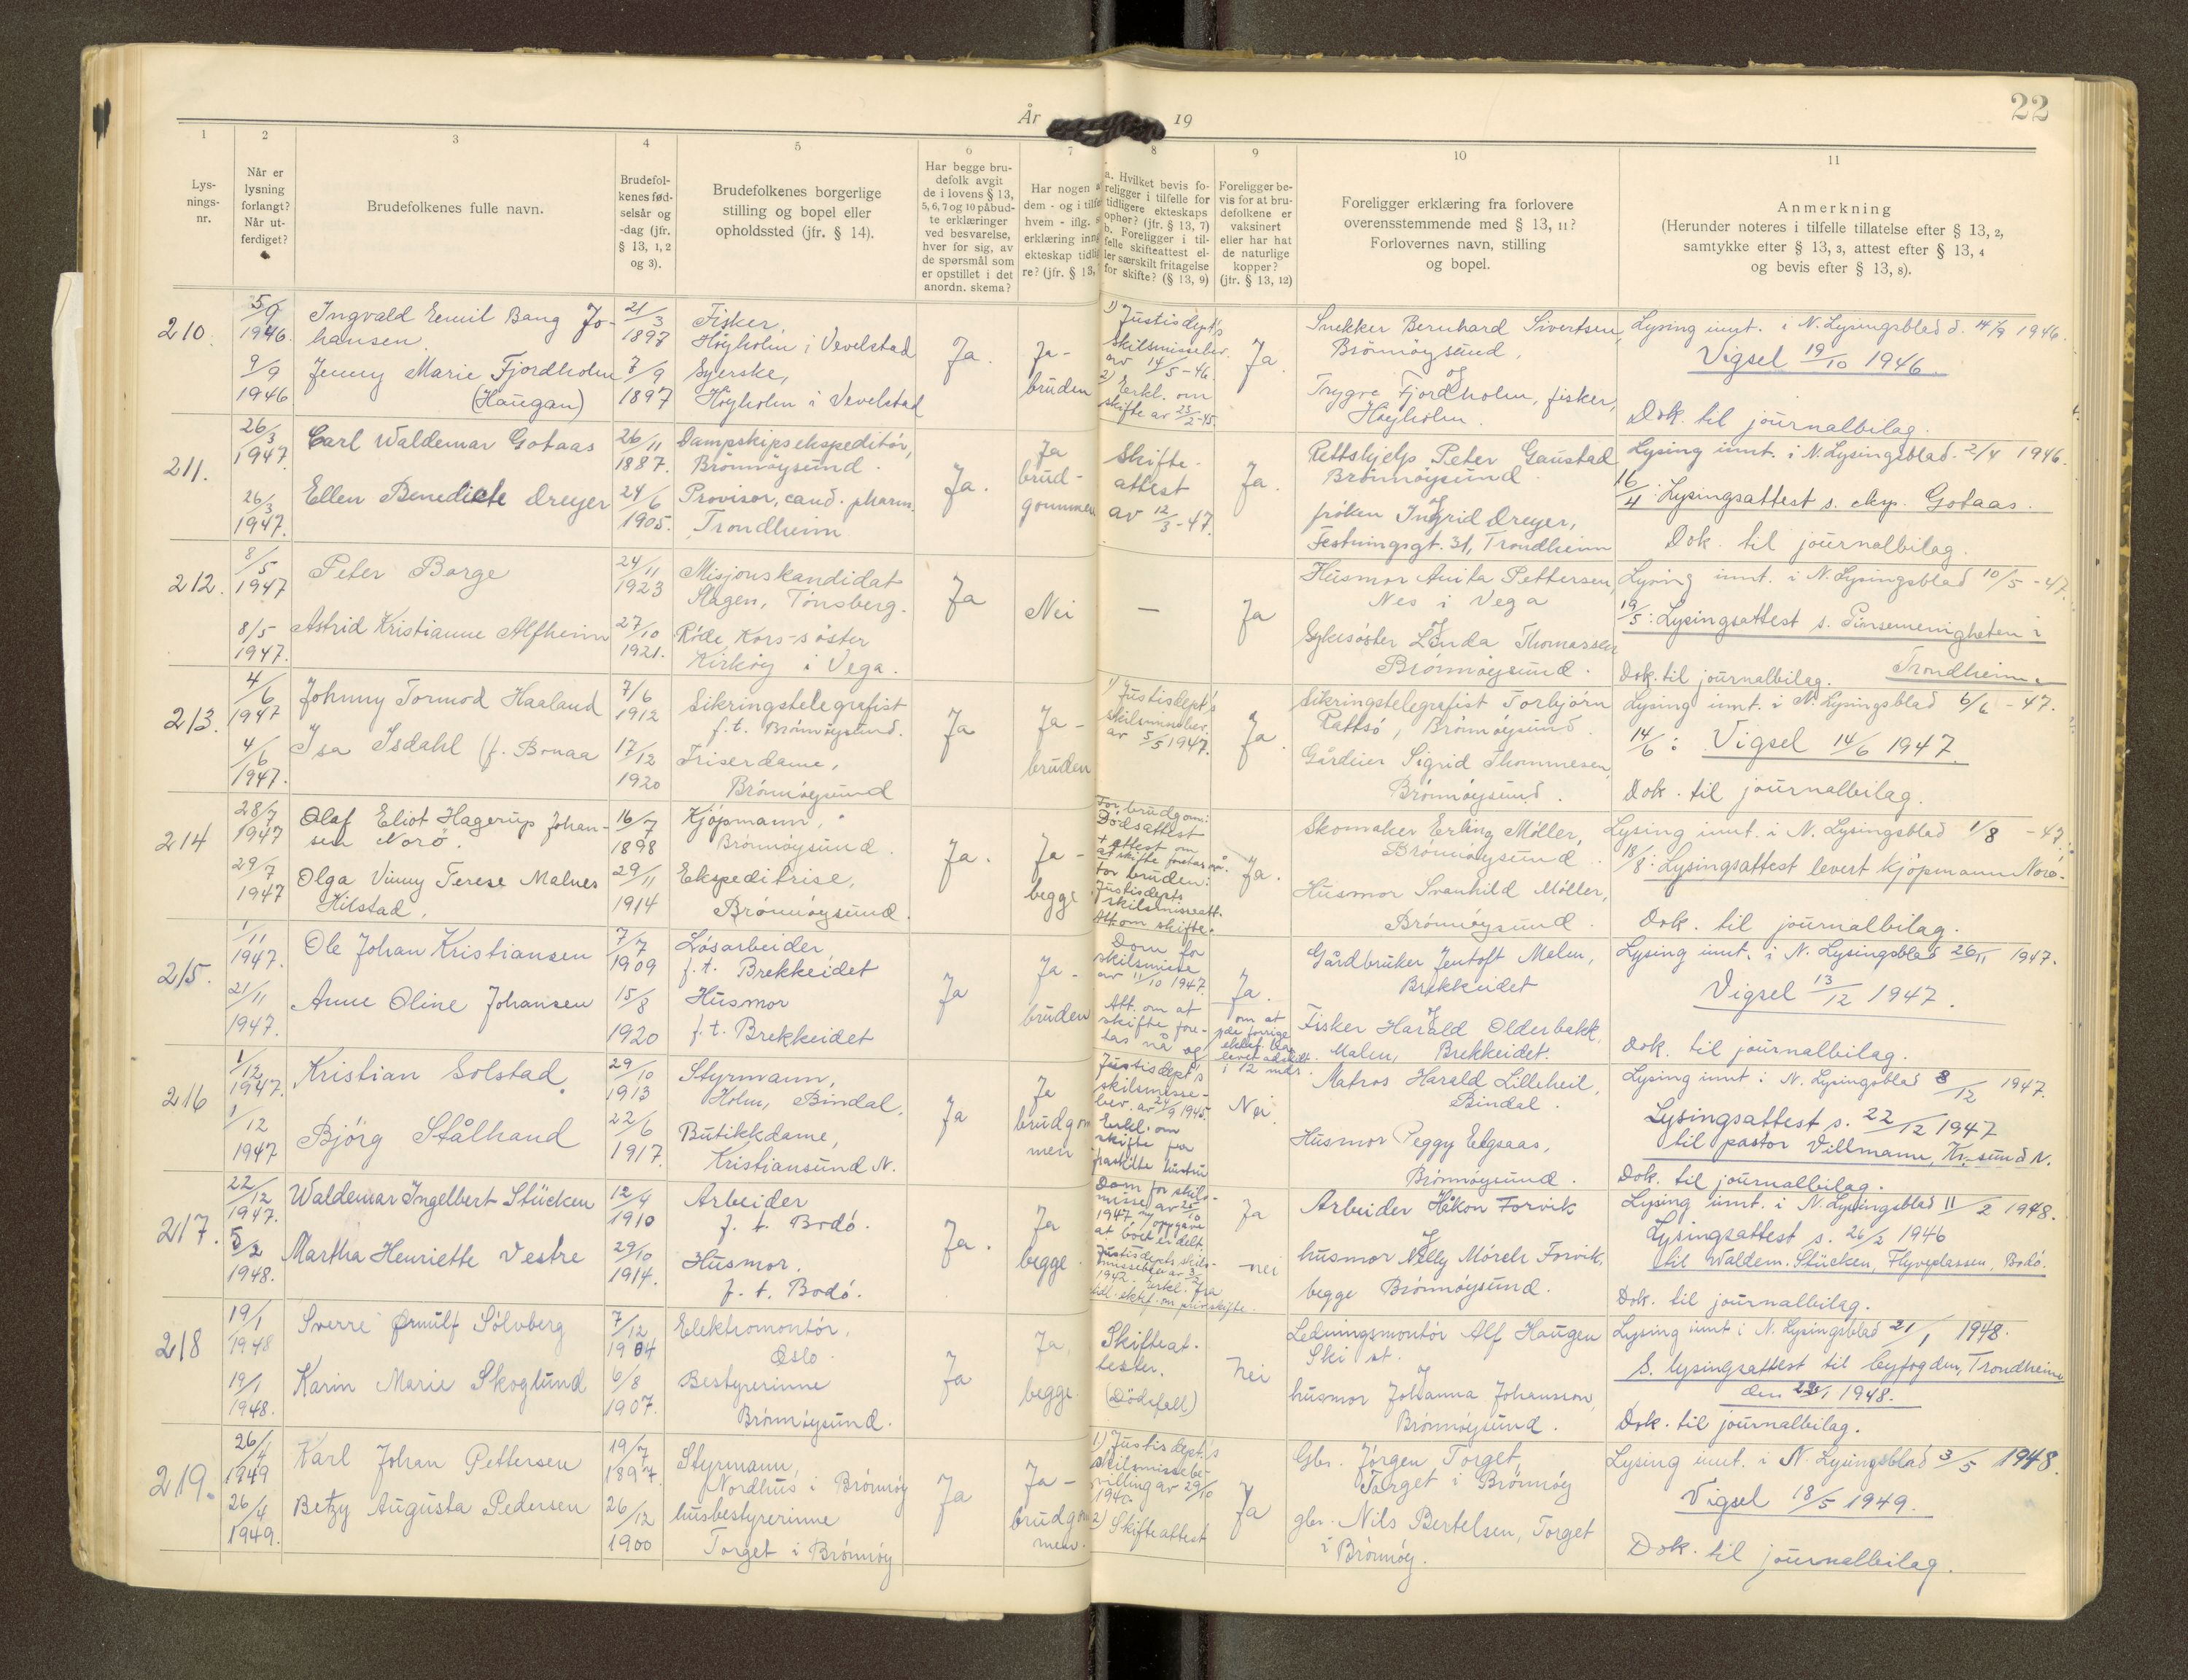 22
År 19
1 2 3 4 5 6 7 8 9 10 11
Lys-
nings-
nr.
Når er
lysning
forlangt?
Når ut-
ferdiget?
Brudefolkenes fulle navn.
Brudefol-
kenes fød-
selsår og
-dag (jfr.
§ 13, 1, 2
og 3).
Brudefolkenes borgerlige
stilling og bopel eller
opholdssted (jfr. § 14).
Har begge bru-
defolk avgit
de i lovens § 13,
5, 6, 7 og 10 påbud-
te erklæringer
ved besvarelse,
hver for sig, av
de spørsmål som
er opstillet i det
anordn. skema?
Har nogen a
dem - og i tilfe
hvem - iflg. s
erklæring inng
ekteskap tidlig
re? (jfr. § 13,
a. Hvilket bevis fo-
religger i tilfelle for
tidligere ekteskaps
ophør? (jfr. § 13, 7)
b. Foreligger i til-
felle skifteattest el-
ler særskilt fritagelse
for skifte? (§ 13, 9)
Foreligger be-
vis for at bru-
defolkene er
vaksinert
eller har hat
de naturlige
kopper?
(jfr. § 13, 12)
Foreligger erklæring fra forlovere
overensstemmende med § 13, 11?
Forlovernes navn, stilling
og bopel.
Anmerkning
(Herunder noteres i tilfelle tillatelse efter § 13, 2,
samtykke efter § 13, 3, attest efter § 13, 4
og bevis efter § 13, 8).
210.
5/9
1946.
9/9
1946
Ingvald Emil Bang Jo-
hansen.
Jenny Marie Fjordholm
(Haugan)
21/3
1897
7/9
1897
Fisker,
Høyholm i Vevelstad
Syerske,
Høyholm i Vevelstad
Ja.
Ja -
bruden
1) Justisdept's
skilsmissebev.
av 14/5-46.
2) Erkl. om
skifte av 23/2-45.
Ja
Snekker Bernhard Sivertsen,
Brönnöysund,
og
Trygve Fjordholm, fisker,
Höyholm.
Lysing innt. i N. Lysingsblad d. 14/9 1946.
Vigsel 19/10 1946.
Dok. til journalbilag.
211.
26/3
1947.
26/3
1947.
Carl Waldemar Gotaas
Ellen Benedicte Dreyer
26/11
1887.
24/6
1905.
Dampskipsekspeditör,
Brönnöysund.
Provisor, cand. pharm.
Trondheim
Ja.
Ja
brud-
gommen
Skifte-
attest
av 12/3-47.
Ja.
Rettshjelp Peter Gaustad
Brönnöysund
og
fröken Ingrid Dreyer,
Festningsgt. 31, Trondheim
Lysing innt. i N. Lysingsblad. 2/4 1946.
16/4: Lysingsattest s. eksp. Gotaas.
Dok. til journalbilag.
212.
8/5
1947
8/5
1947.
Peter Borge
Astrid Kristianne Alfheim
24/11
1923
27/10
1921.
Misjonskandidat
Slagen, Tönsberg.
Röde Kors-söster
Kirköy i Vega.
Ja
Nei
—
Ja
Husmor Anita Pettersen,
Nes i Vega
og
Sykesöster Linda Thomassen
Brönnöysund.
Lysing innt. i N. Lysingsblad 10/5 -47.
19/5: Lysingsattest s. Pinsemenigheten i
Trondheim.
Dok. til journalbilag.
213.
4/6
1947
4/6
1947.
Johnny Tormod Haaland
Isa Isdahl (f. Bonaa
7/6
1912
17/12
1920
Sikringstelegrafist
f.t. Brönnöysund.
Friserdame,
Brönnöysund
Ja
Ja -
bruden
1) Justisdept's
skilsmissebev.
av 5/5 1947.
Ja.
Sikringstelegrafist Torbjörn
Rattsö, Brönnöysund.
Gårdeier Sigrid Thommesen,
Brönnöysund.
Lysing innt. i N. Lysingsblad 6/6 - 47.
14/6: Vigsel 14/6 1947.
Dok. til journalbilag.
214
28/7
1947
29/7
1947
Olaf Eliot Hagerup Johan-
sen Norö.
Olga Vinny Terese Malnes
Hilstad,
16/7
1898
29/11
1914
Kjöpmann,
Brönnöysund.
Ekspeditrise,
Brönnöysund.
Ja.
Ja -
begge
For brudgom:
Dödsattest
+ attest om
at skifte foretas nå.
For bruden:
Justisdepts
skilsmisseatt.
Att om skifte.
Ja.
Skomaker Erling Möller,
Brönnöysund.
Husmor Svanhild Möller,
Brönnöysund.
Lysing innt. i N. Lysingsblad 1/8 - 47.
18/8: Lysingsattest levert kjöpmann Norö.
Dok. til journalbilag.
215.
1/11
1947.
21/11
1947.
Ole Johan Kristiansen
Anne Oline Johansen
7/7
1909
15/8
1920
Lösarbeider
f.t. Brekkeidet
Husmor
f.t. Brekkeidet
Ja
Ja -
bruden
Dom for
skilsmisse
av 11/10 1947.
Att. om at
skifte fore-
tas nå og
Ja.
om at
levet adskilt
i 12 mdr.
Gårdbruker Jentoft Malm,
Brekkeidet
og
Fisker Harald Olderbakk,
Malm, Brekkeidet.
Lysing innt. i N. Lysingsblad 26/11 1947.
Vigsel 13/12 1947.
Dok. til journalbilag.
216
1/12
1947.
1/12
1947
Kristian Solstad.
Björg Stålhand
29/10
1913
22/6
1917.
Styrmann,
Holm, Bindal.
Butikkdame,
Kristiansund N.
Ja
Ja
brudgom
men
Justisdept's
skilsmisse-
bev. av 24/9 1945.
Erkl. om
skifte fra
fraskilte hustru
Nei.
Matros Harald Lilleheil,
Bindal.
Husmor Peggy Elgsaas,
Brönnöysund.
Lysing innt i N. Lysingsblad 8/12 1947.
Lysingsattest s. 22/12 1947
til pastor Villmann, Kr.sund N.
Dok. til journalbilag.
217.
22/12
1947.
5/2
1948.
Waldemar Ingelbert Stücken
Martha Henriette Vestre
12/4
1910
29/10
1914.
Arbeider
f. t. Bodö.
Husmor.
f. t. Bodö.
Ja.
Ja
begge
Dom for skils-
misse av 25/10
1947 og oppgave
at boet er delt.
Justisdepts skils-
missebev av 3/2
1942. Erkl. fra
tidl. ektef. om privat skifte.
Ja
nei
Arbeider Håkon Forvik
og
husmor Nelly Mörch Forvik,
begge Brönnöysund.
Lysing innt. i N. Lysingsblad 11/2 1948.
Lysingsattest s. 26/2 1946
til Waldem. Stücken, Flyveplassen, Bodö.
Dok. til journalbilag.
218
19/1
1948
19/1
1948.
Sverre Ørnulf Sölvberg
Karin Marie Skoglund
7/12
1904
6/8
1907.
Elektromontör,
Oslo.
Bestyrerinne
Brönnöysund.
Ja
Ja,
begge.
Skifteat-
tester.
(Dödsfall)
Nei
Ledningsmontör Alf Haugen
Ski st.
og
husmor Johanna Johansson,
Brönnöysund.
Lysing innt i N. Lysingsblad 21/1 1948.
S. lysingsattest til byfogden, Trondheim
den 1948.
Dok. til journalbilag.
219.
26/4
1949
26/4
1949.
Karl Johan Pettersen
Betzy Augusta Pedersen
19/7
1897.
26/12
1900
Styrmann,
Nordhus i Brönnöy
husbestyrerinne
Torget i Brönnöy
Ja
Ja -
brudgom
men.
1) Justisdept.'s
skilsmissebe-
villing av 29/10
1940.
2) Skifteattest
Ja
Gbr. Jörgen Torget,
Torget i Brönnöy
gbr. Nils Bertelsen, Torget
i Brönnöy.
Lysing innt. i N. Lysingsblad 3/5 1948.
Vigsel 18/5 1949.
Dok. til journalbilag.